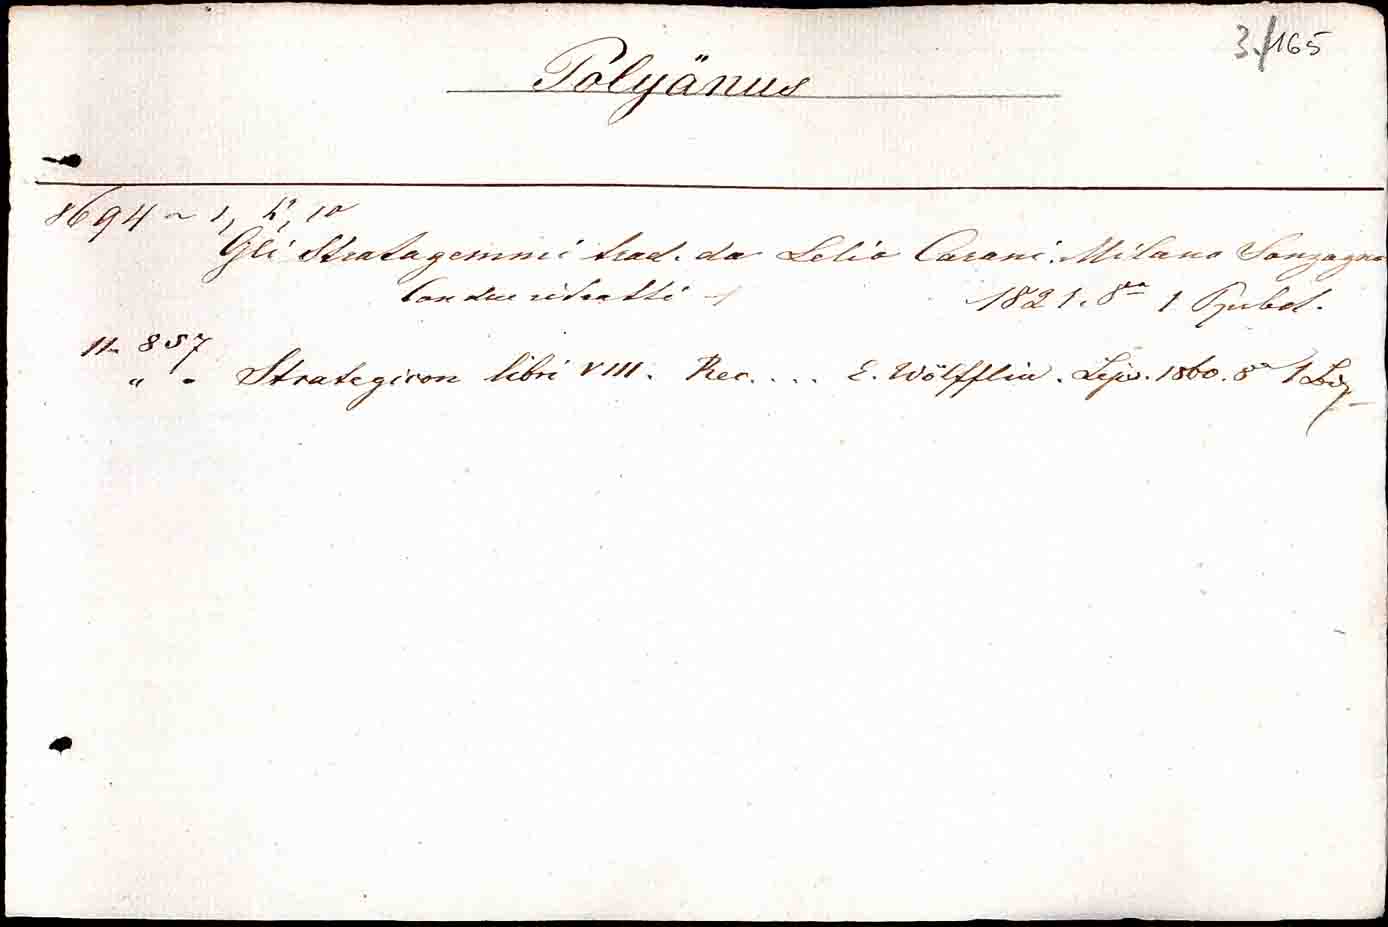 3./165
Polyänus
8694 ~ 1, 4, 10
Gli Stratagemmi trad. da Lelio Carani. Milano Sonzagno
Con due ritratti 1821. 8° 1
11- 857
" - Strategicon libri VIII. Rec. ... E. Wölfflin. Lips. 1860. 8° 1